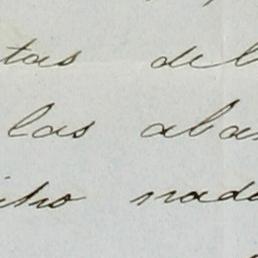 tas del
las aba
icho nada